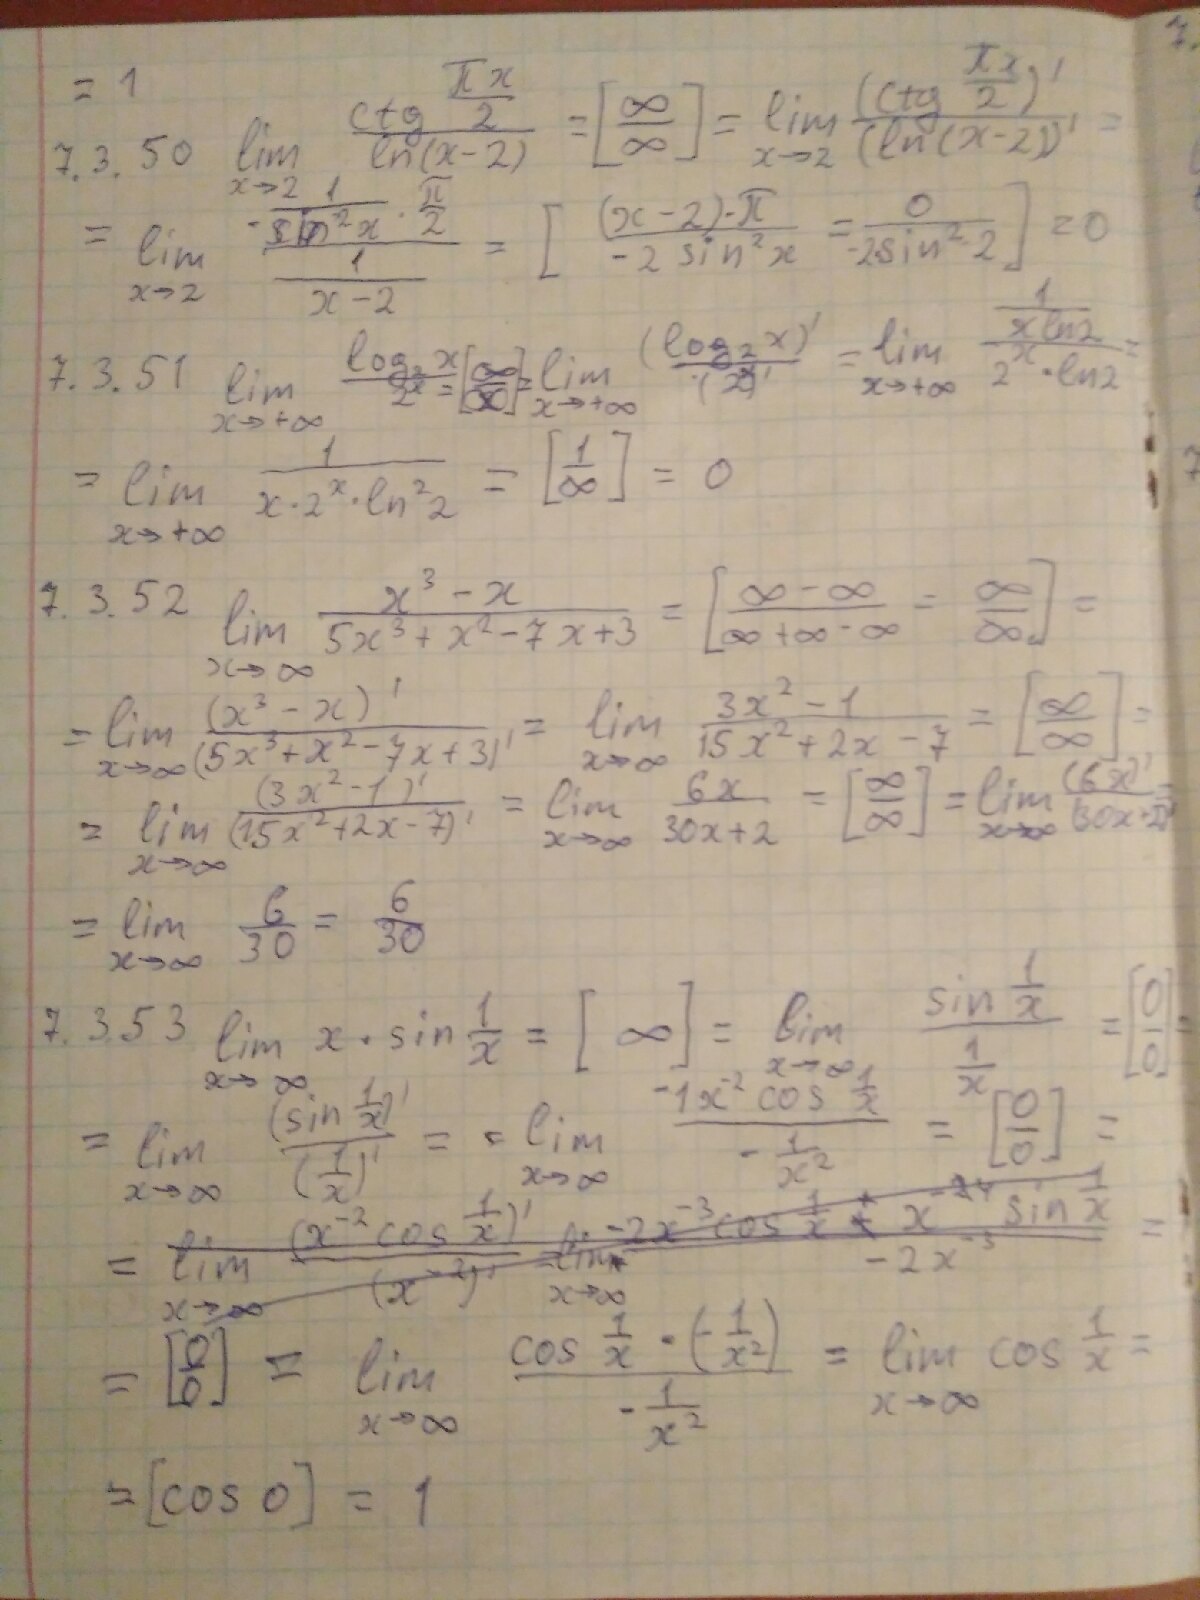 = 1
7.3.50 lim x→2 (ctg πx/2)/(ln(x-2)) = [∞/∞] = lim x→2 (ctg πx/2)'/(ln(x-2))' =
= lim x→2 (-1/(sin²x) · π/2)/(1/(x-2)) = [((x-2)·π)/(-2 sin²x) = 0/(-2sin²2)] = 0
7.3.51 lim x→+∞ (log₂x)/(2ˣ) = [∞/∞] = lim x→+∞ (log₂x)'/(2ˣ)' = lim x→+∞ (1/(x ln2))/(2ˣ·ln2) =
= lim x→+∞ 1/(x·2ˣ·ln²2) = [1/∞] = 0
7.3.52 lim x→∞ (x³-x)/(5x³+x²-7x+3) = [(∞-∞)/(∞+∞-∞) = ∞/∞] =
= lim x→∞ (x³-x)'/(5x³+x²-7x+3)' = lim x→∞ (3x²-1)/(15x²+2x-7) = [∞/∞] =
= lim x→∞ (3x²-1)'/(15x²+2x-7)' = lim x→∞ 6x/(30x+2) = [∞/∞] = lim x→∞ (6x)'/(30x+2)' =
= lim x→∞ 6/30 = 6/30
7.3.53 lim x→∞ x·sin 1/x = [∞] = lim x→∞ (sin 1/x)/(1/x) = [0/0] =
= lim x→∞ (sin 1/x)'/(1/x)' = = lim x→∞ (-1x⁻² cos 1/x)/(-1/x²) = [0/0] =
= lim x→∞ (x⁻² cos 1/x)'/(x⁻²)' = lim x→∞ -2x⁻³ cos 1/x sin 1/x / -2x⁻³ =
= [0/0] = lim x→∞ (cos 1/x · (-1/x²))/(-1/x²) = lim x→∞ cos 1/x =
= [cos 0] = 1
7.
7